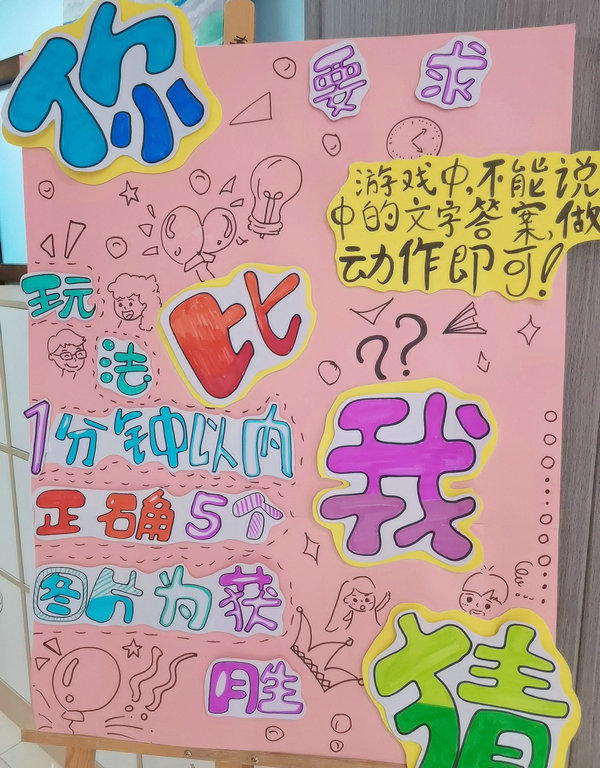 你比我猜
要求
游戏中,不能说
中的文字答案,做
动作即可!
玩法
1分钟以内
正确5个
图片为获
胜
??